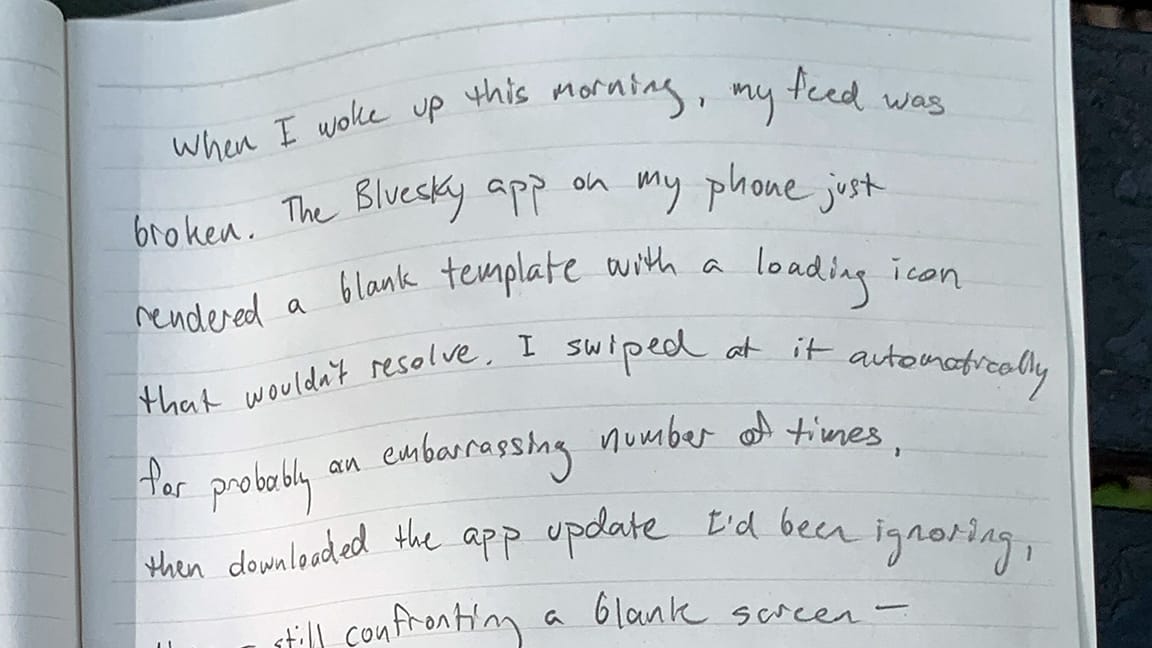 When I woke up this morning, my feed was
broken. The Bluesky app on my phone just
rendered a blank template with a loading icon
that wouldn't resolve. I swiped at it automatically
for probably an embarrassing number of times,
then downloaded the app update I'd been ignoring,
still confronting a blank screen —